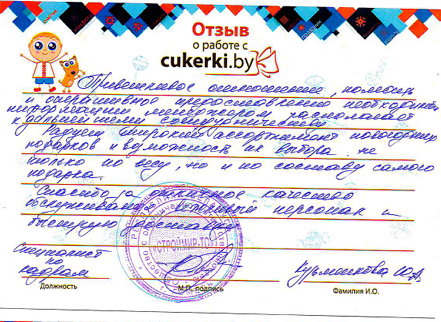 Отзыв
о работе с
cukerki.by
Приветливое отношение, помощь
и оперативное предоставление необходимой
информации менеджером располагает
к дальнейшему сотрудничеству.
Радует широкий ассортимент новогодних
подарков и возможность их выбора не
только по весу, но и по составу самого
подарка.
Спасибо за отличное качество
обслуживания,
персонал и
быструю доставку
СТРОЙМИР-ТОП
Специалист
по
кадрам
Должность
М.П., подпись
Фамилия И.О.